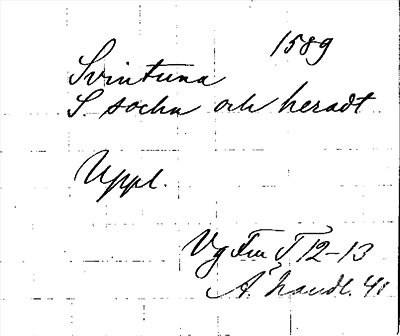 1589
Svintuna
S. sochn och heradt
Uppl.
Vg Fru T 12-13
A. handl. 41